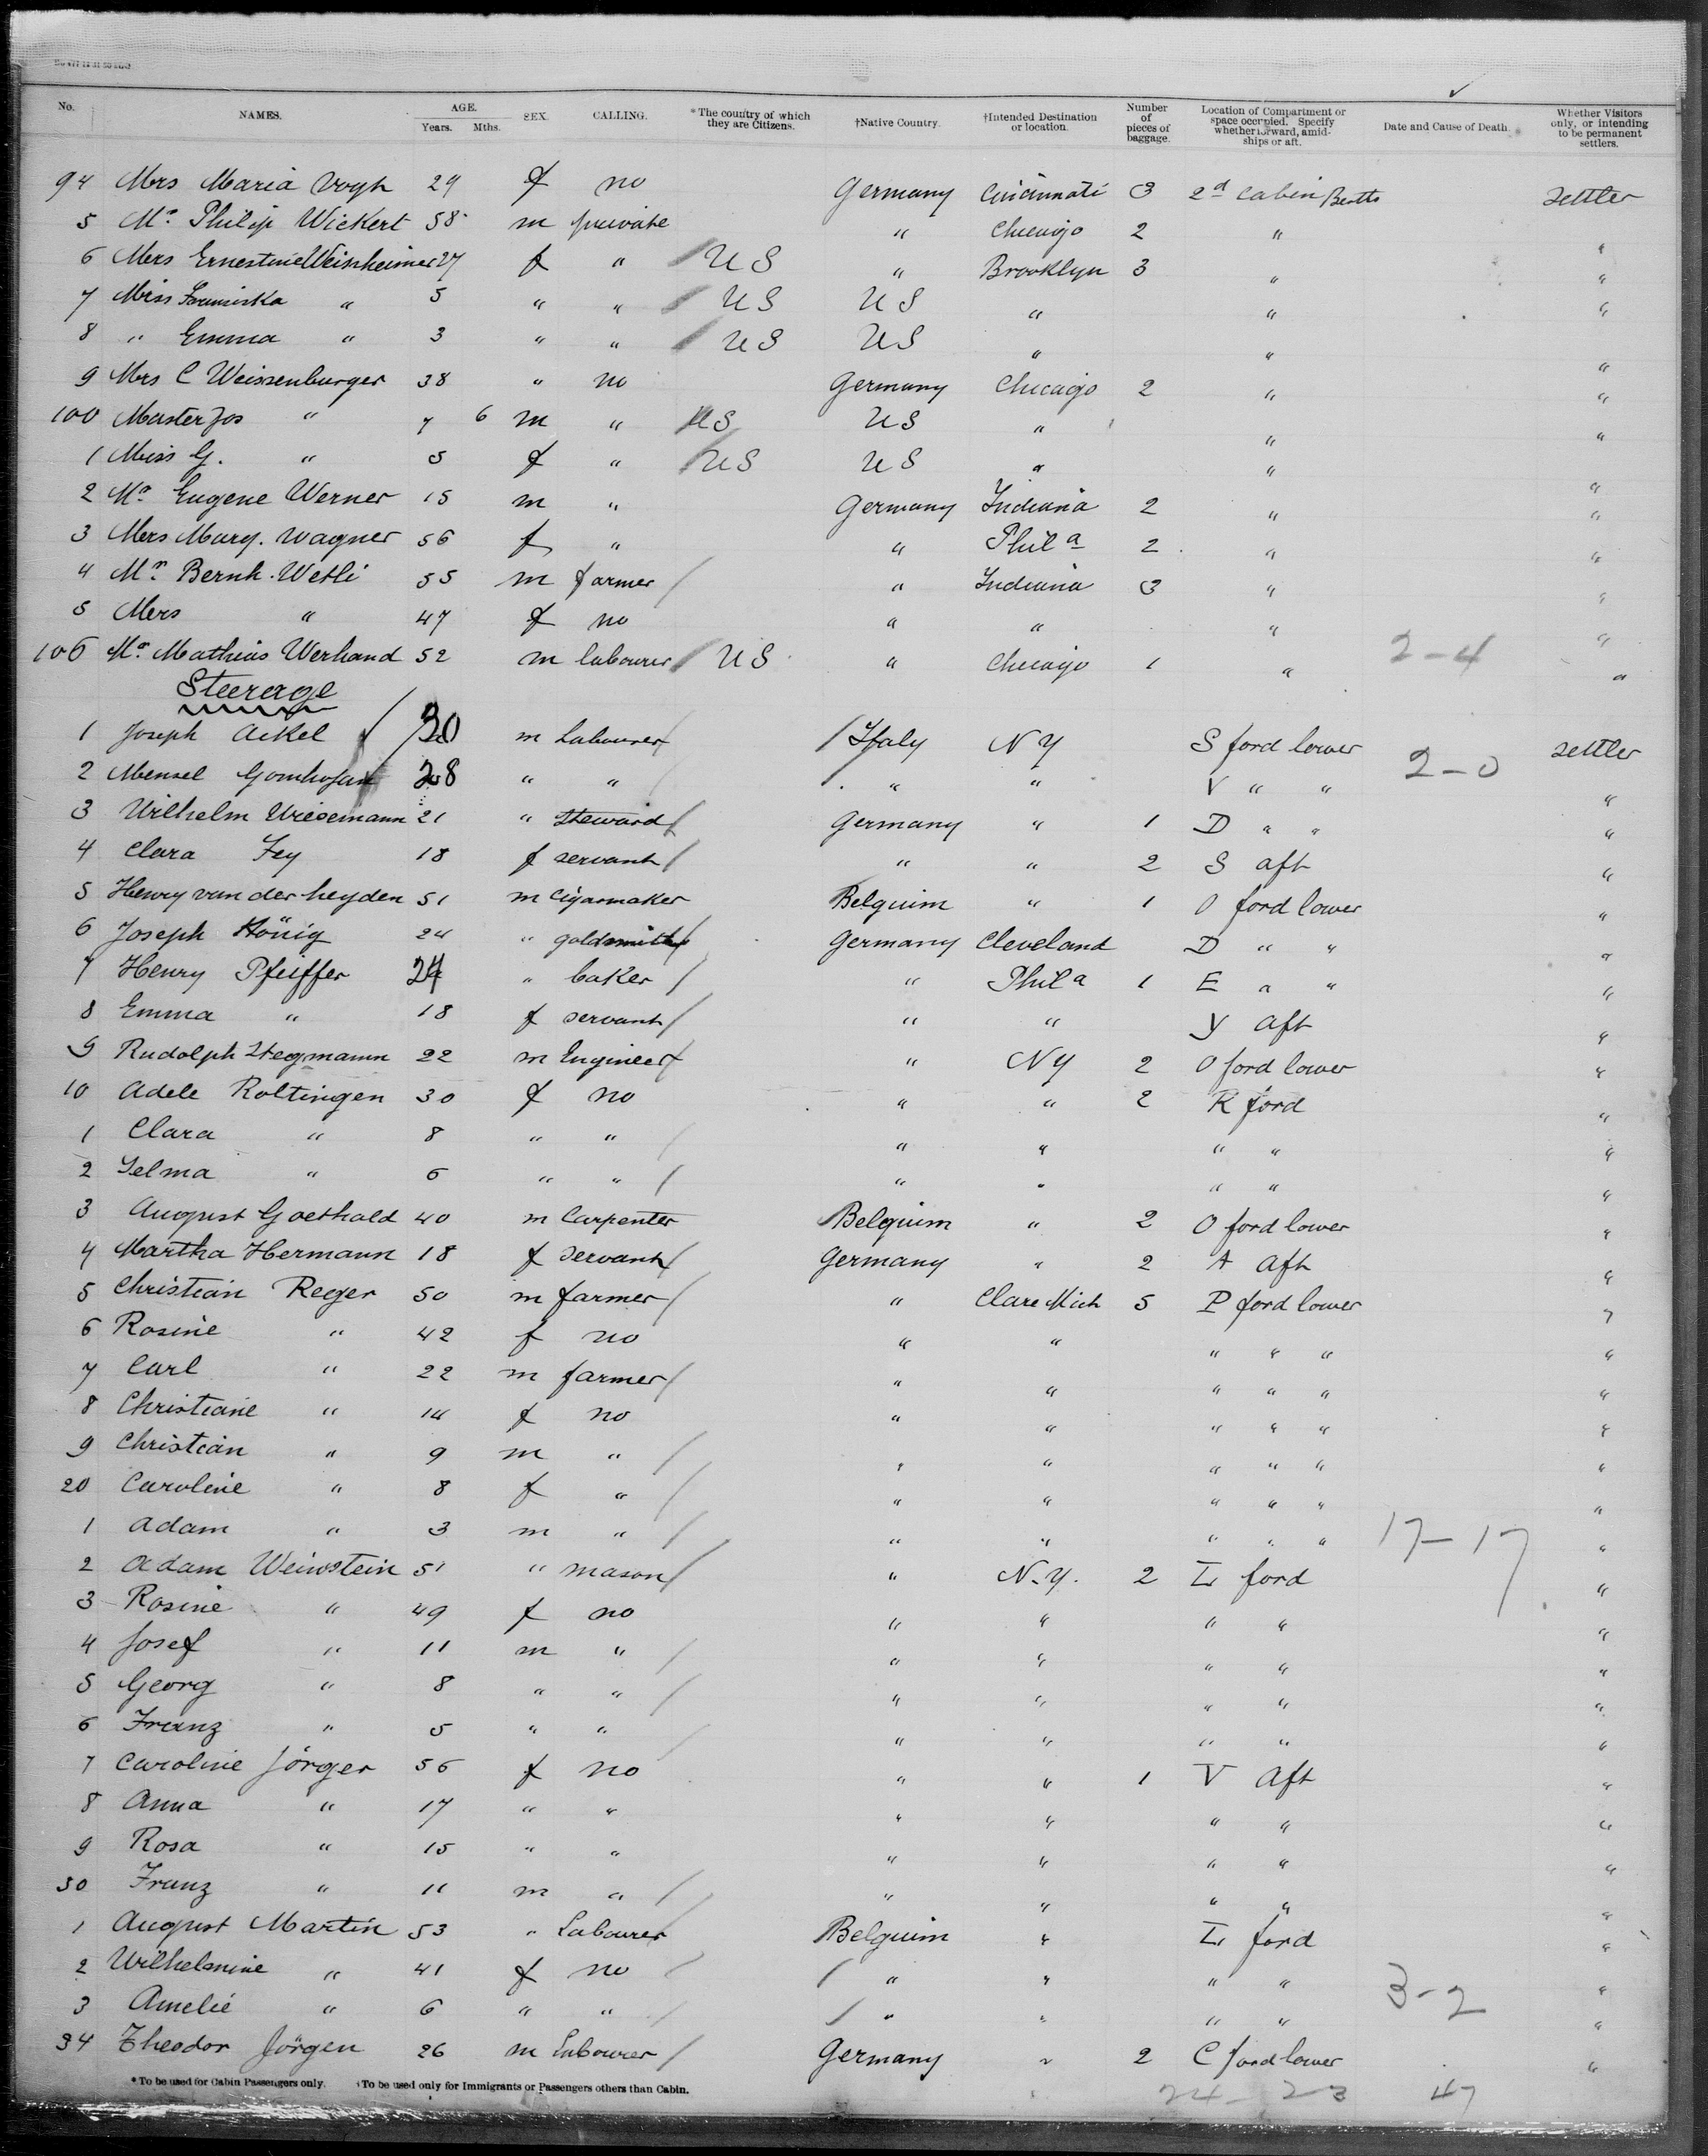 No. NAMES. AGE. Years. Mths. SEX. CALLING. *The country of which they are Citizens. †Native Country. †Intended Destination or location. Number of pieces of baggage. Location of Compartment or space occupied. Specify whether forward, amidships or aft. Date and Cause of Death. Whether Visitors only, or intending to be permanent settlers.
94 Mrs Maria Vogh 29 f no Germany Cincinnati 3 2d Cabin Berths settler
5 Mr Philip Wickert 58 m private " Chicago 2 " "
6 Mrs Ernestine Weinheimer 27 f " / US " Brooklyn 3 " "
7 Miss " 5 " " / US US " " "
8 " Emma " 3 " " / US US " " "
9 Mrs C Weissenburger 38 " no Germany Chicago 2 " "
100 Master Jos " 7 6 m " / US US " " "
1 Miss G. " 5 f " / US US " " "
2 Mr Eugene Werner 15 m " Germany Indiana 2 " "
3 Mrs Marg. Wagner 56 f " " Phila 2 " "
4 Mr Bernh. Wetli 55 m farmer / " Indiana 3 " "
5 Mrs " 47 f no " " " "
106 Mr Mathias Werhand 52 m labourer / US " Chicago 1 " 2-4 "
Steerage
1 Joseph Ackel / 30 m Labourer / / Italy NY S ford lower settler
2 Mensel 28 " " / / " " V " " 2-0 "
3 Wilhelm Wiesemann 21 " Steward / Germany " 1 D " " "
4 Clara Fey 18 f servant / " " 2 S aft "
5 Henry van der heyden 51 m Cigarmaker Belguim " 1 O ford lower "
6 Joseph König 24 " goldsmith / Germany Cleveland D " " "
7 Henry Pfeiffer 24 " baker / " Phila 1 E " " "
8 Emma " 18 f servant / " " Y aft "
9 Rudolph Stegmann 22 m Engineer / " NY 2 O ford lower "
10 Adele Roltingen 30 f no " " 2 R ford "
1 Clara " 8 " " / " " " " "
2 Selma " 6 " " / " " " " "
3 August Goethald 40 m Carpenter Belguim " 2 O ford lower "
4 Martha Hermann 18 f servant / Germany " 2 A aft "
5 Christian Reger 50 m farmer / " Clare Mich 5 P ford lower "
6 Rosine " 42 f no " " " " " "
7 Carl " 22 m farmer / " " " " " "
8 Christiane " 14 f no " " " " " "
9 Christian " 9 m " / " " " " " "
20 Caroline " 8 f " / " " " " " "
1 Adam " 3 m " / " " " " " 17-17 "
2 Adam Weinstein 51 " mason / " N.Y. 2 L ford "
3 Rosine " 49 f no " " " " "
4 Josef " 11 m " / " " " " "
5 Georg " 8 " " / " " " " "
6 Franz " 5 " " / " " " " "
7 Caroline Jörger 56 f no " " 1 V aft "
8 Anna " 17 " " " " " " "
9 Rosa " 15 " " " " " " "
30 Franz " 11 m " / " " " " "
1 August Martin 53 " Labourer Belguim " L ford "
2 Wilhelmine " 41 f no / / " " " " 3-2 "
3 Amelie " 6 " " / / " " " " "
34 Theodor Jörgen 26 m Labourer / Germany " 2 C ford lower "
*To be used for Cabin Passengers only. †To be used only for Immigrants or Passengers others than Cabin.
24-23 47